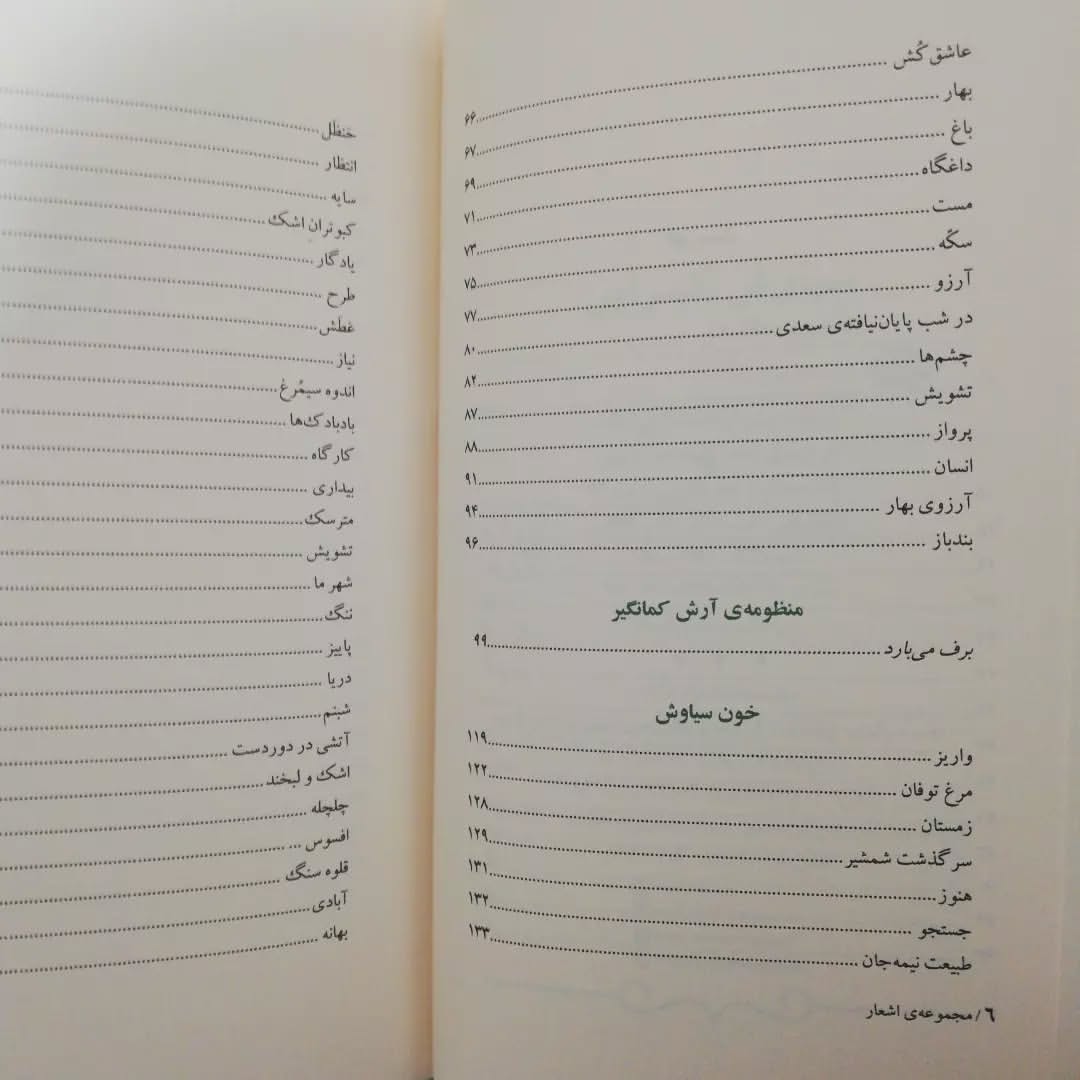 عاشق‌کُش ........ ۶۶
بهار ........ ۶۷
باغ ........ ۶۹
داغگاه ........ ۷۱
مست ........ ۷۳
سکّه ........ ۷۵
آرزو ........ ۷۷
در شب پایان‌نیافته‌ی سعدی ........ ۸۰
چشم‌ها ........ ۸۲
تشویش ........ ۸۷
پرواز ........ ۸۸
انسان ........ ۹۱
آرزوی بهار ........ ۹۴
بندباز ........ ۹۶
منظومه‌ی آرش کمانگیر
برف می‌بارد ........ ۹۹
خون سیاوش
واریز ........ ۱۱۹
مرغ توفان ........ ۱۲۲
زمستان ........ ۱۲۸
سرگذشت شمشیر ........ ۱۲۹
هنوز ........ ۱۳۱
جستجو ........ ۱۳۲
طبیعت نیمه‌جان ........ ۱۳۳
۶ / مجموعه‌ی اشعار
حَنظَل ........
انتظار ........
سایه ........
کبوترانِ اشک ........
یادگار ........
طرح ........
عَطَش ........
نیاز ........
اندوه سیمُرغ ........
بادبادک‌ها ........
کارگاه ........
بیداری ........
مترسک ........
تشویش ........
شهر ما ........
ننگ ........
پاییز ........
دریا ........
شبنم ........
آتشی در دوردست ........
اشک و لبخند ........
چلچله ........
افسوس ... ........
قلوه سنگ ........
آبادی ........
بهانه ........